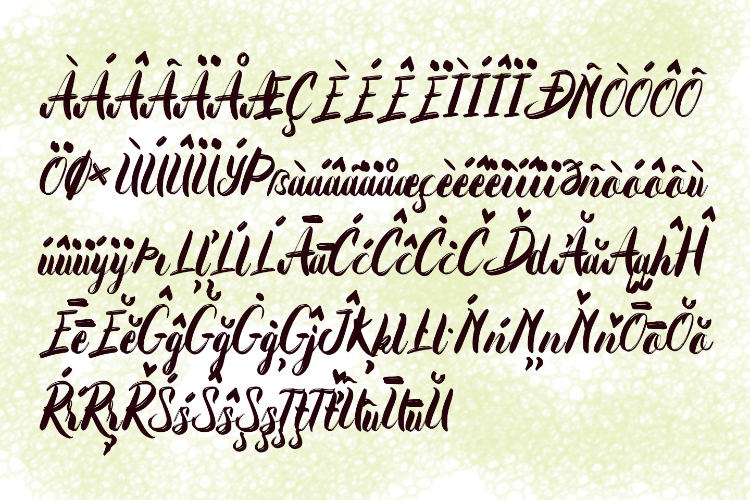 ÀÁÂÃÄÅÆÇÈÉÊËÌÍÎÏÐÑÒÓÔÕ
ÖØ×ÙÚÛÜÝÞßàáâãäåæçèéêëìíîïðñòóôõù
úûüýÿÞıĽļĹĺĹĀāĆćĈĉĊċČĎďĂăĄąĥĤ
ĒēĔĕĜĝĞğĠġĢģĴĶķlĿŀŃńŅņŇňŌōŎŏ
ŔŕŖŗŘŚśŜŝŞşŢţŤŰűŪūŬ